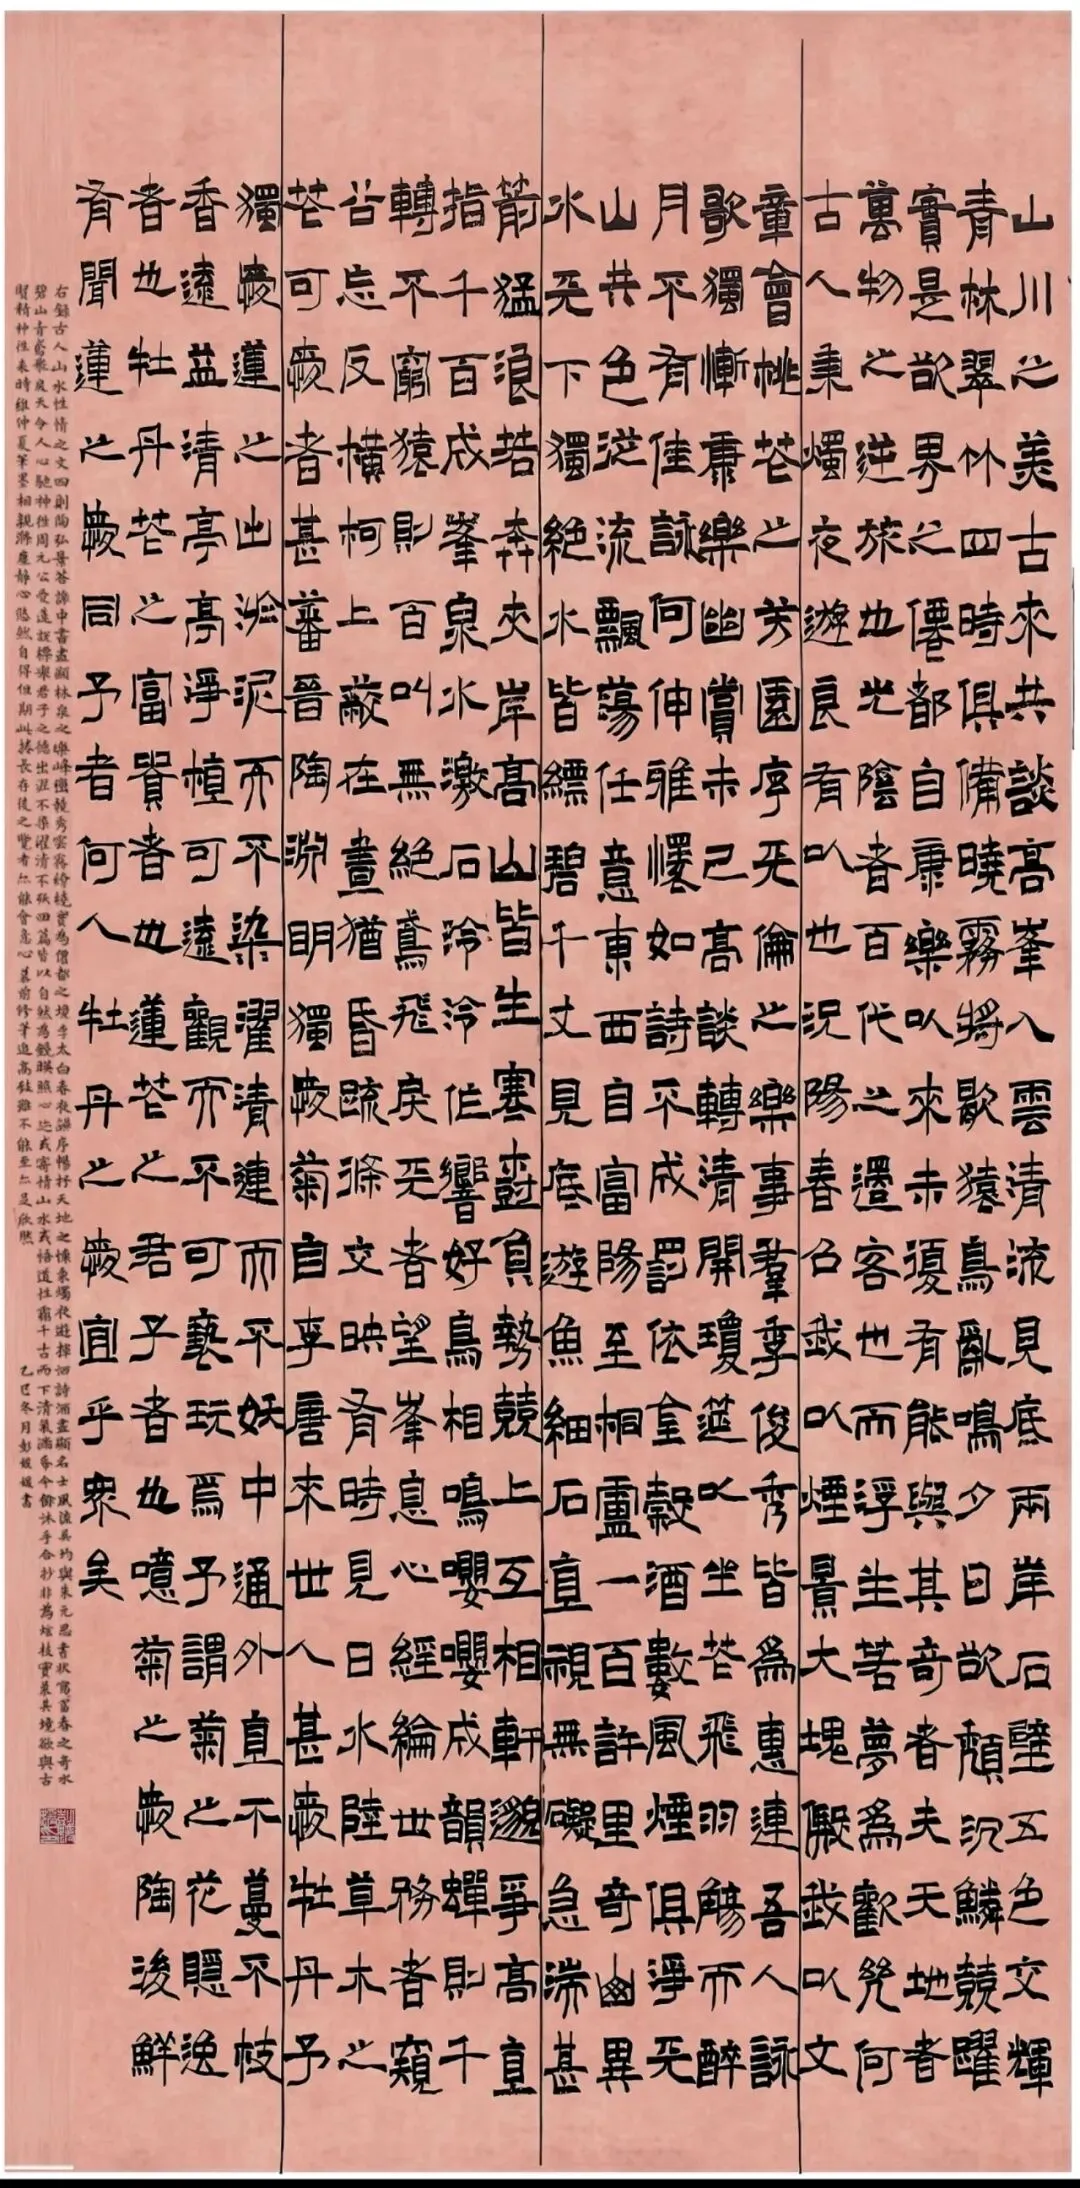 山川之美古來共談高峯入雲清流見底兩岸石壁五色交輝
青林翠竹四時俱備曉霧將歇猿鳥亂鳴夕日欲頹沉鱗競躍
實是欲界之僊都自康樂以來未復有能與其奇者夫天地者
萬物之逆旅也光陰者百代之過客也而浮生若夢為歡幾何
古人秉燭夜遊良有以也況陽春召我以煙景大塊假我以文
章會桃花之芳園序天倫之樂事羣季俊秀皆為惠連吾人詠
歌獨慚康樂幽賞未已高談轉清開瓊筵以坐花飛羽觴而醉
月不有佳詠何伸雅懷如詩不成罰依金穀酒數風煙俱淨天
山共色從流飄蕩任意東西自富陽至桐盧一百許里奇幽異
水天下獨絕水皆縹碧千丈見底遊魚細石直視無礙急湍甚
箭猛浪若奔夾岸高山皆生寒樹負勢競上互相軒邈爭高直
指千百成峯泉水激石泠泠作響好鳥相鳴嚶嚶成韻蟬則千
轉不窮猿則百叫無絕鳶飛戾天者望峯息心經綸世務者窺
谷忘反橫柯上蔽在晝猶昏疏條交映有時見日水陸草木之
花可愛者甚蕃晉陶淵明獨愛菊自李唐來世人甚愛牡丹予
獨愛蓮之出淤泥而不染濯清漣而不妖中通外直不蔓不枝
香遠益清亭亭淨植可遠觀而不可褻玩焉予謂菊之花隱逸
者也牡丹花之富貴者也蓮花之君子者也噫菊之愛陶後鮮
有聞蓮之愛同予者何人牡丹之愛宜乎眾矣
右錄古人山水性情之文四則陶弘景答謝中書書盡顯林泉之樂峰巒競秀雲霧繚繞實為僊都之境李太白春夜讌序暢抒天地之懷秉燭夜遊揮灑詩酒盡顯名士風流吳均與朱元思書狀寫富春之奇水
碧山青鳶飛戾天令人心馳神往周元公愛蓮說標舉君子之德出淤不染濯清不妖四篇皆以自然為鏡映照心迹或寄情山水或悟道性千古而下清氣滿今餘沐手合抄非為炫技實慕其境欲與古
賢精神往來時維仲夏筆墨相親塵靜心悠然自得但期此捲長存後之覽者亦能會意心慕前修筆追高雖不能至亦足欣然
乙巳冬月彭媛媛書